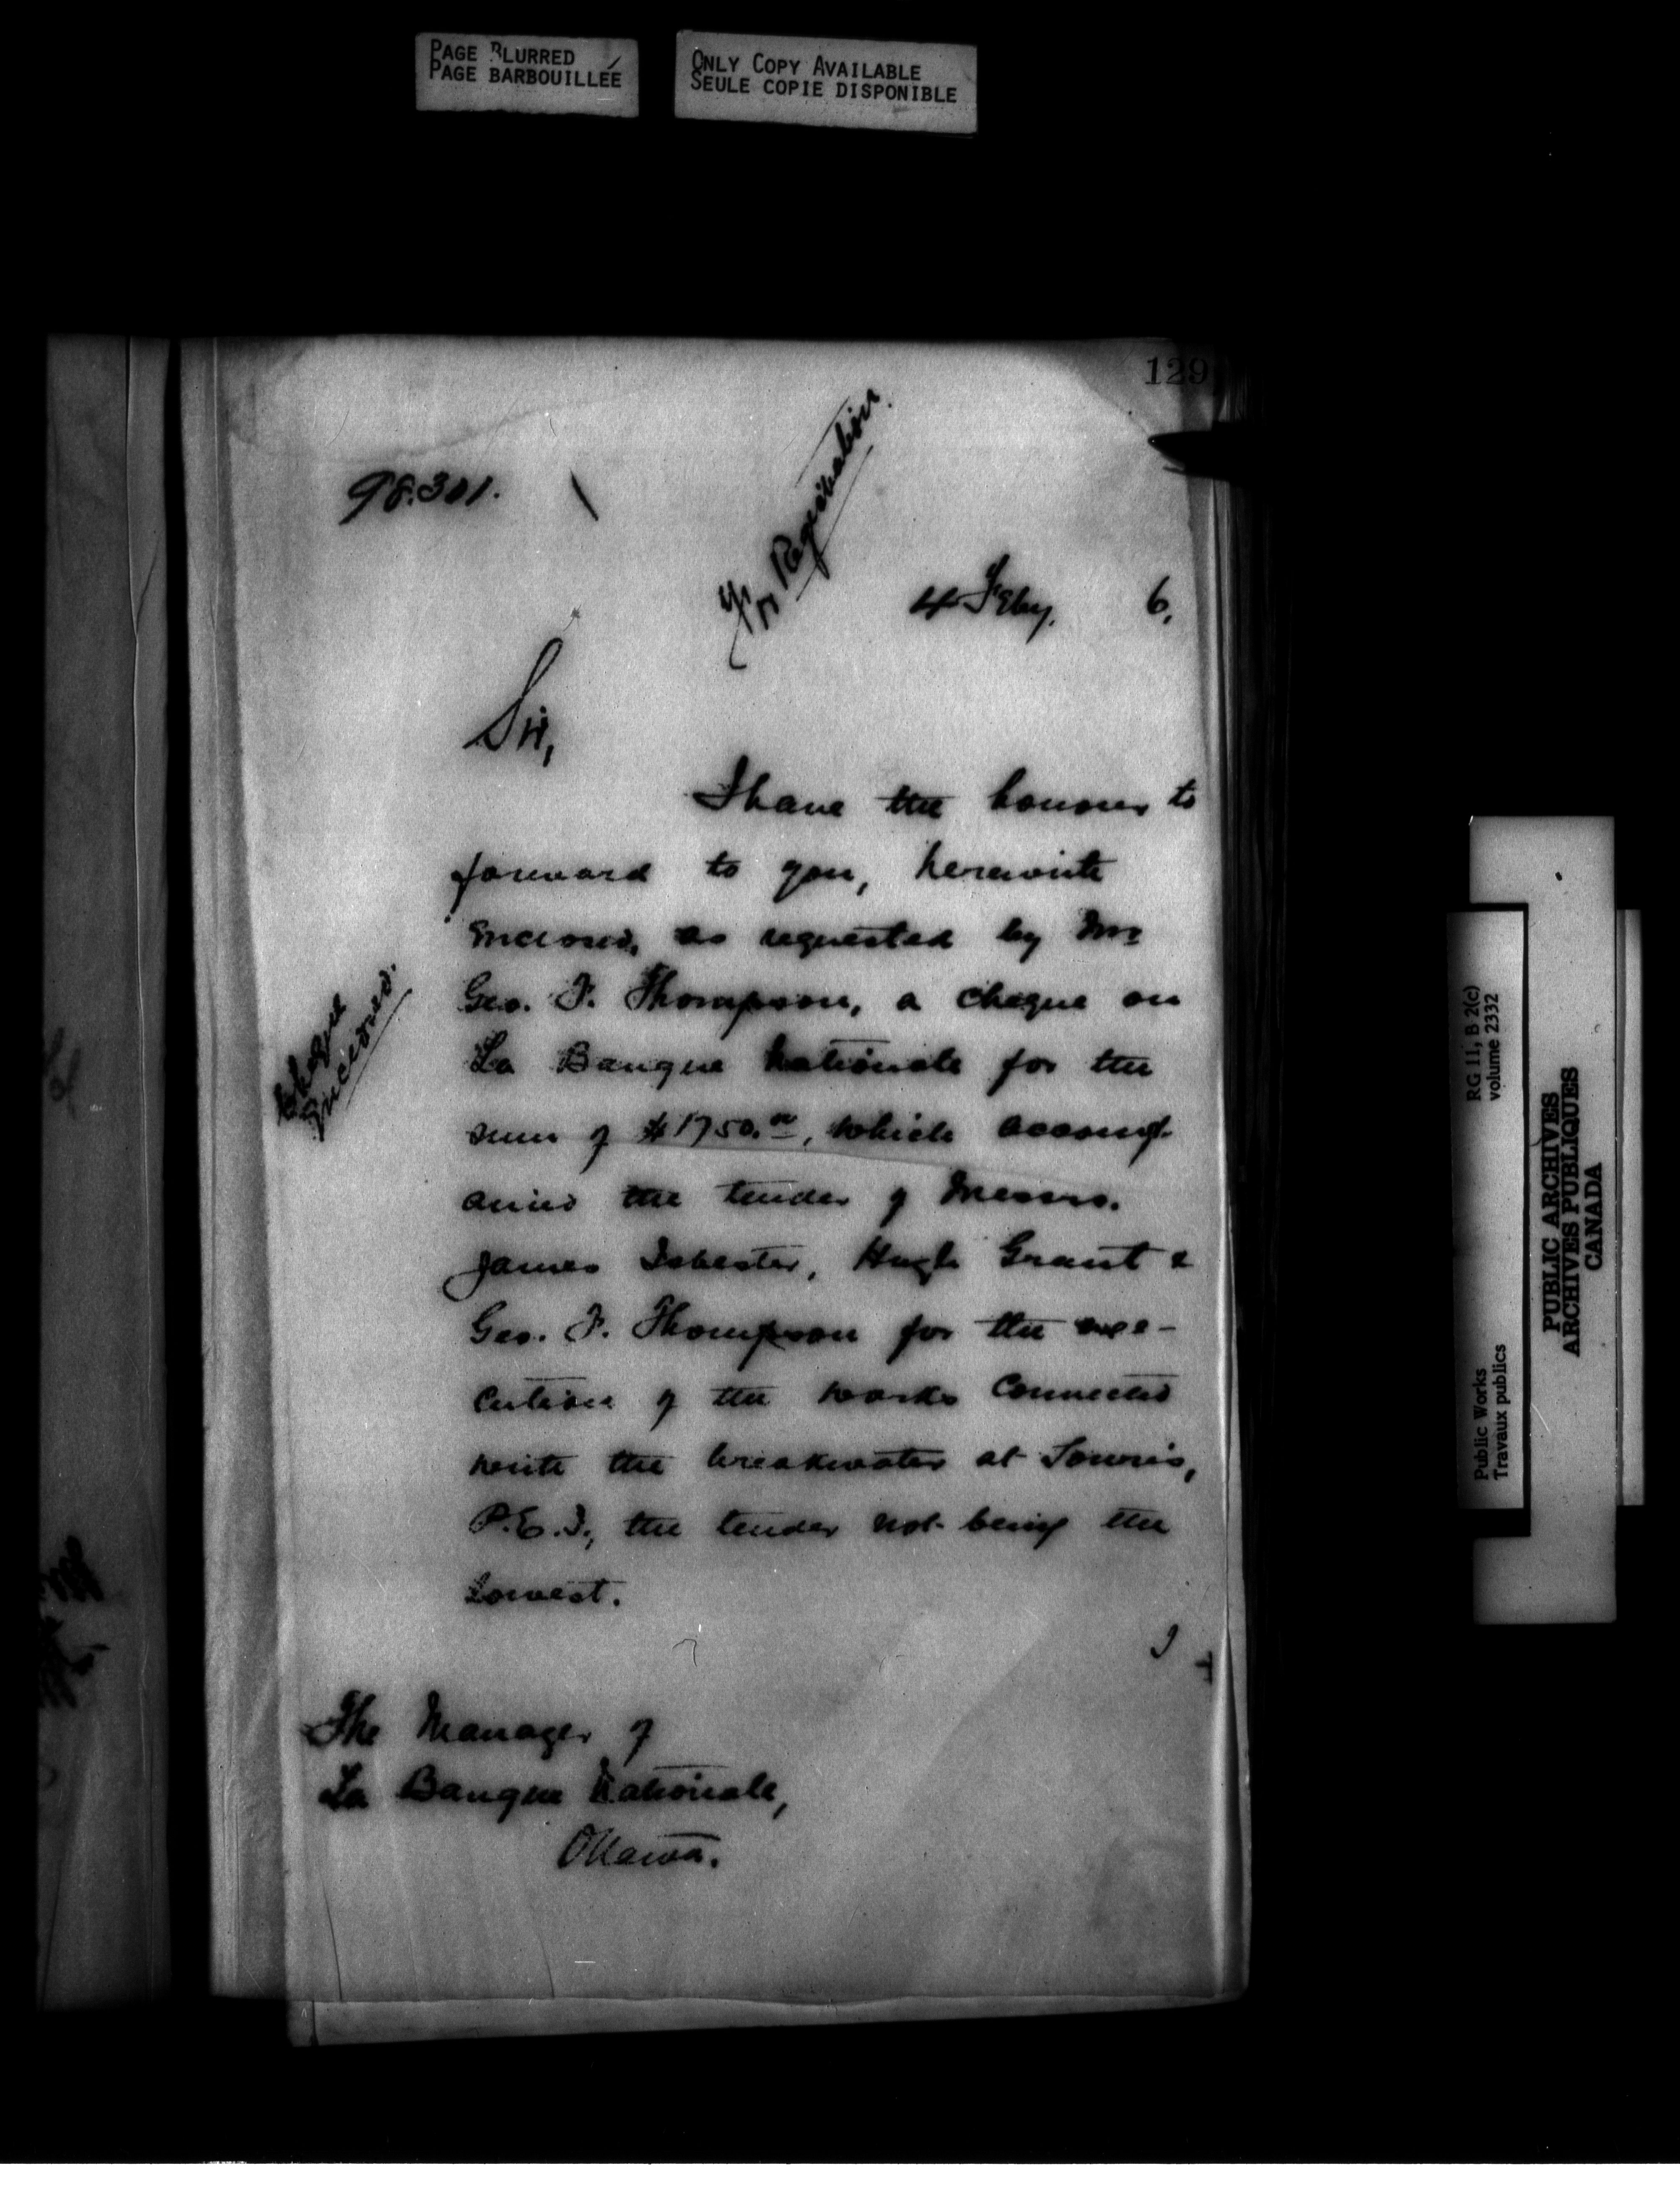 PAGE BLURRED
PAGE BARBOUILLÉE
ONLY COPY AVAILABLE
SEULE COPIE DISPONIBLE
129
98.301.
Registration
4 Feby. 6.
Sir,
I have the honour to
forward to you, herewith
enclosed, as requested by Mr
Geo. F. Thompson, a cheque on
La Banque Nationale for the
sum of $1750.00, which accomp-
anied the tender of Messrs.
James Isbester, Hugh Grant &
Geo. F. Thompson for the exe-
cution of the works connected
with the breakwater at Souris,
P.E.I., the tender not being the
lowest.
Cheque
Enclosed.
I
The Manager of
La Banque Nationale,
Ottawa.
RG 11, B 2(c)
volume 2332
Public Works
Travaux publics
PUBLIC ARCHIVES
ARCHIVES PUBLIQUES
CANADA